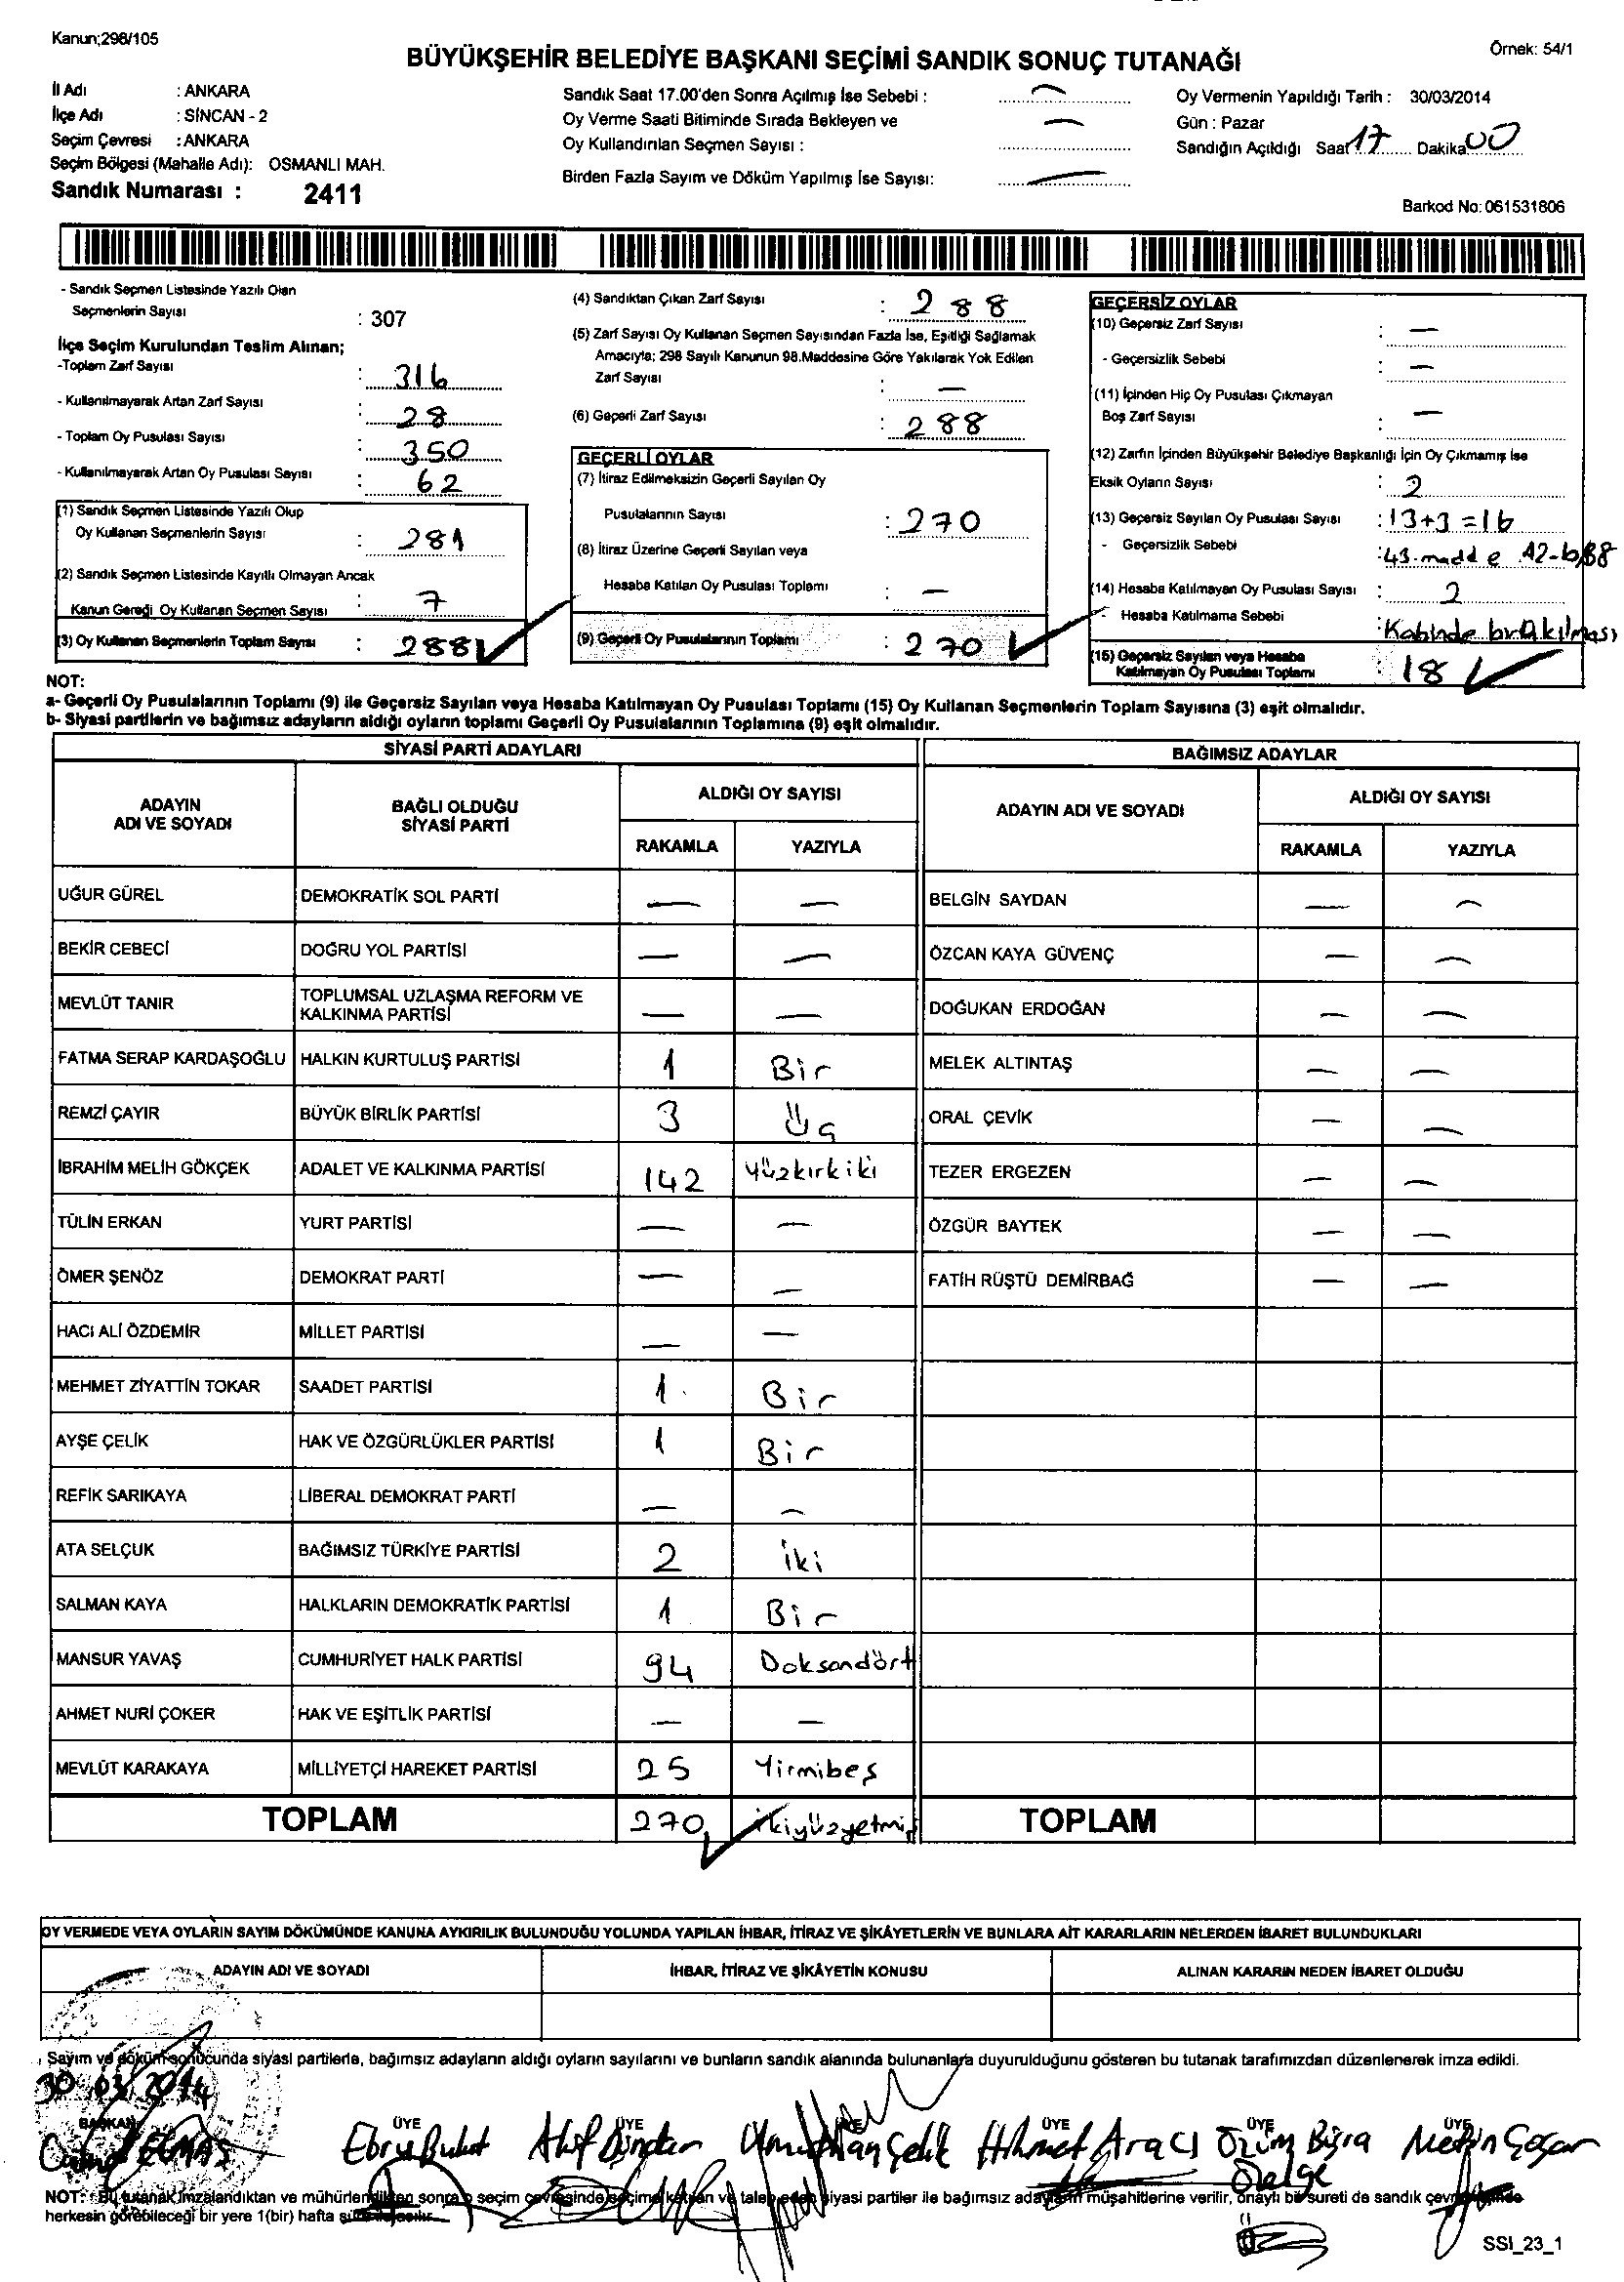 Kanun;298/105
Örnek: 54/1
BÜYÜKŞEHİR BELEDİYE BAŞKANI SEÇİMİ SANDIK SONUÇ TUTANAĞI
İl Adı : ANKARA
İlçe Adı : SİNCAN - 2
Seçim Çevresi : ANKARA
Seçim Bölgesi (Mahalle Adı): OSMANLI MAH.
Sandık Numarası : 2411
Sandık Saat 17.00'den Sonra Açılmış İse Sebebi : —
Oy Verme Saati Bitiminde Sırada Bekleyen ve
Oy Kullandırılan Seçmen Sayısı : —
Birden Fazla Sayım ve Döküm Yapılmış İse Sayısı: —
Oy Vermenin Yapıldığı Tarih : 30/03/2014
Gün : Pazar
Sandığın Açıldığı Saat 17 Dakika 00
Barkod No: 061531806
- Sandık Seçmen Listesinde Yazılı Olan
Seçmenlerin Sayısı : 307
İlçe Seçim Kurulundan Teslim Alınan;
-Toplam Zarf Sayısı : 316
- Kullanılmayarak Artan Zarf Sayısı : 28
- Toplam Oy Pusulası Sayısı : 350
- Kullanılmayarak Artan Oy Pusulası Sayısı : 62
(1) Sandık Seçmen Listesinde Yazılı Olup
Oy Kullanan Seçmenlerin Sayısı : 281
(2) Sandık Seçmen Listesinde Kayıtlı Olmayan Ancak
Kanun Gereği Oy Kullanan Seçmen Sayısı : 7
(3) Oy Kullanan Seçmenlerin Toplam Sayısı : 288
(4) Sandıktan Çıkan Zarf Sayısı : 288
(5) Zarf Sayısı Oy Kullanan Seçmen Sayısından Fazla İse, Eşitliği Sağlamak
Amacıyla; 298 Sayılı Kanunun 98.Maddesine Göre Yakılarak Yok Edilen
Zarf Sayısı : —
(6) Geçerli Zarf Sayısı : 288
GEÇERLİ OYLAR
(7) İtiraz Edilmeksizin Geçerli Sayılan Oy
Pusulalarının Sayısı : 270
(8) İtiraz Üzerine Geçerli Sayılan veya
Hesaba Katılan Oy Pusulası Toplamı : —
(9) Geçerli Oy Pusulalarının Toplamı : 270
GEÇERSİZ OYLAR
(10) Geçersiz Zarf Sayısı : —
- Geçersizlik Sebebi : —
(11) İçinden Hiç Oy Pusulası Çıkmayan
Boş Zarf Sayısı : —
(12) Zarfın İçinden Büyükşehir Belediye Başkanlığı İçin Oy Çıkmamış İse
Eksik Oyların Sayısı : 2
(13) Geçersiz Sayılan Oy Pusulası Sayısı : 13+3=16
- Geçersizlik Sebebi : 43.madde A2-b/B8
(14) Hesaba Katılmayan Oy Pusulası Sayısı : 2
- Hesaba Katılmama Sebebi : Kabinde bırakılması
(15) Geçersiz Sayılan veya Hesaba
Katılmayan Oy Pusulası Toplamı : 18
NOT:
a- Geçerli Oy Pusulalarının Toplamı (9) ile Geçersiz Sayılan veya Hesaba Katılmayan Oy Pusulası Toplamı (15) Oy Kullanan Seçmenlerin Toplam Sayısına (3) eşit olmalıdır.
b- Siyasi partilerin ve bağımsız adayların aldığı oyların toplamı Geçerli Oy Pusulalarının Toplamına (9) eşit olmalıdır.
SİYASİ PARTİ ADAYLARI
ADAYIN
ADI VE SOYADI
BAĞLI OLDUĞU
SİYASİ PARTİ
ALDIĞI OY SAYISI
RAKAMLA YAZIYLA
UĞUR GÜREL DEMOKRATİK SOL PARTİ — —
BEKİR CEBECİ DOĞRU YOL PARTİSİ — —
MEVLÜT TANIR TOPLUMSAL UZLAŞMA REFORM VE
KALKINMA PARTİSİ — —
FATMA SERAP KARDAŞOĞLU HALKIN KURTULUŞ PARTİSİ 1 Bir
REMZİ ÇAYIR BÜYÜK BİRLİK PARTİSİ 3 Üç
İBRAHİM MELİH GÖKÇEK ADALET VE KALKINMA PARTİSİ 142 yüzkırkiki
TÜLİN ERKAN YURT PARTİSİ — —
ÖMER ŞENÖZ DEMOKRAT PARTİ — —
HACI ALİ ÖZDEMİR MİLLET PARTİSİ — —
MEHMET ZİYATTİN TOKAR SAADET PARTİSİ 1 Bir
AYŞE ÇELİK HAK VE ÖZGÜRLÜKLER PARTİSİ 1 Bir
REFİK SARIKAYA LİBERAL DEMOKRAT PARTİ — —
ATA SELÇUK BAĞIMSIZ TÜRKİYE PARTİSİ 2 iki
SALMAN KAYA HALKLARIN DEMOKRATİK PARTİSİ 1 Bir
MANSUR YAVAŞ CUMHURİYET HALK PARTİSİ 94 Doksandört
AHMET NURİ ÇOKER HAK VE EŞİTLİK PARTİSİ — —
MEVLÜT KARAKAYA MİLLİYETÇİ HAREKET PARTİSİ 25 Yirmibeş
TOPLAM 270 ikiyüzyetmiş
BAĞIMSIZ ADAYLAR
ADAYIN ADI VE SOYADI
ALDIĞI OY SAYISI
RAKAMLA YAZIYLA
BELGİN SAYDAN — —
ÖZCAN KAYA GÜVENÇ — —
DOĞUKAN ERDOĞAN — —
MELEK ALTINTAŞ — —
ORAL ÇEVİK — —
TEZER ERGEZEN — —
ÖZGÜR BAYTEK — —
FATİH RÜŞTÜ DEMİRBAĞ — —
TOPLAM
OY VERMEDE VEYA OYLARIN SAYIM DÖKÜMÜNDE KANUNA AYKIRILIK BULUNDUĞU YOLUNDA YAPILAN İHBAR, İTİRAZ VE ŞİKÂYETLERİN VE BUNLARA AİT KARARLARIN NELERDEN İBARET BULUNDUKLARI
ADAYIN ADI VE SOYADI
İHBAR, İTİRAZ VE ŞİKÂYETİN KONUSU
ALINAN KARARIN NEDEN İBARET OLDUĞU
Sayım ve döküm sonucunda siyasi partilerle, bağımsız adayların aldığı oyların sayılarını ve bunların sandık alanında bulunanlara duyurulduğunu gösteren bu tutanak tarafımızdan düzenlenerek imza edildi.
30.03.2014
BAŞKAN ÜYE ÜYE ÜYE ÜYE ÜYE ÜYE
ELMAS Ebru Bulut Akif Dündar Çelik Hikmet Aracı Özüm Büşra Metin
Özalge
NOT: Bu tutanak imzalandıktan ve mühürlendikten sonra o seçim çevresinde seçime katılan ve talep eden siyasi partiler ile bağımsız adayların müşahitlerine verilir, onaylı bir sureti de sandık çevresinde
herkesin görebileceği bir yere 1(bir) hafta süre ile asılır.
SSI_23_1